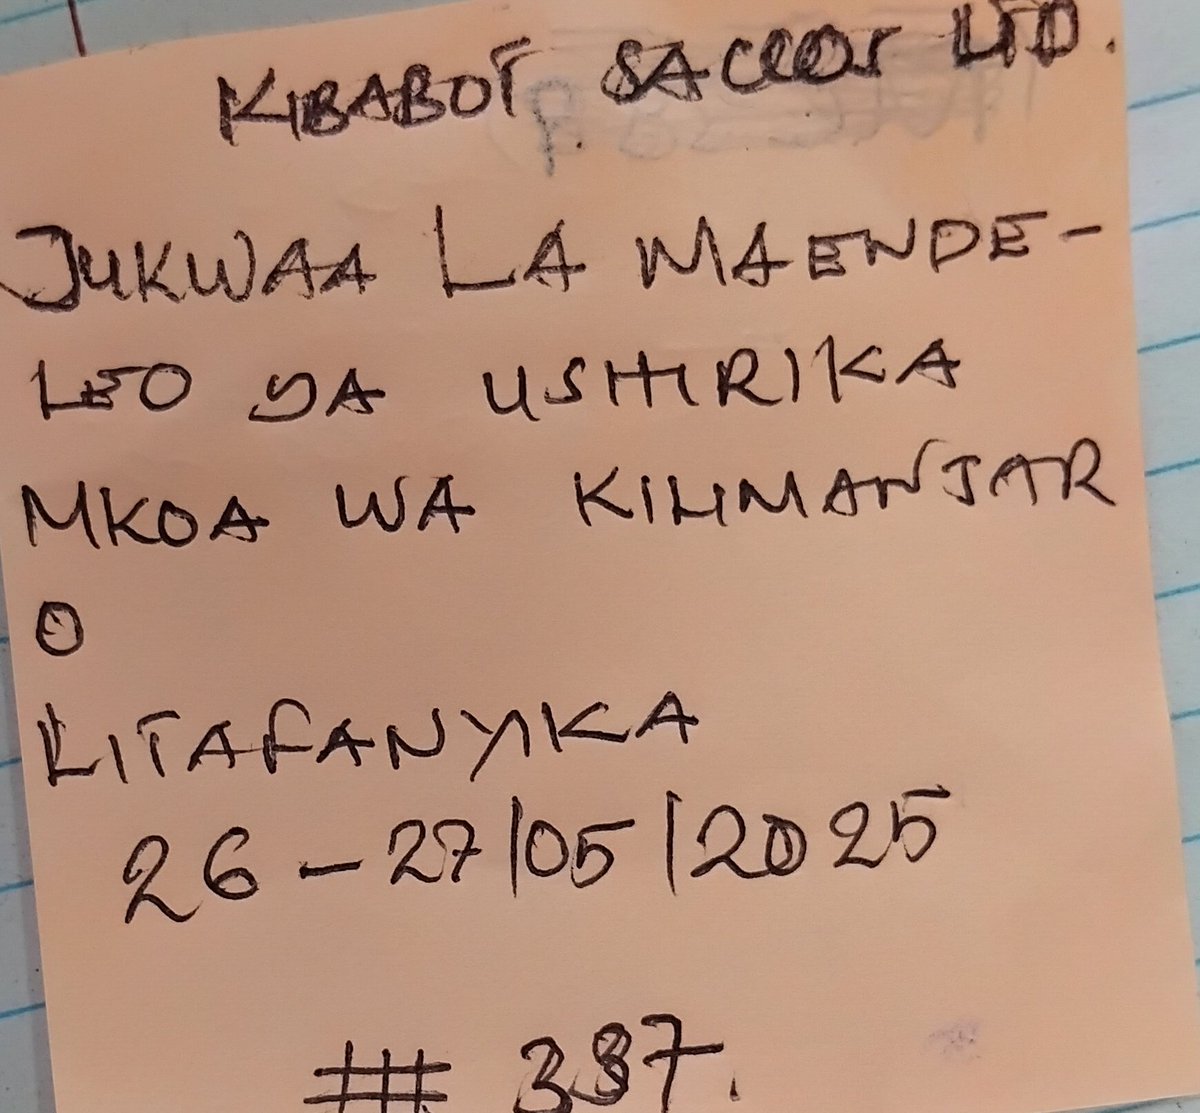 KIBABOT SACCOS LTD.
JUKWAA LA MAENDE-
LEO YA USHIRIKA
MKOA WA KILIMANJAR
O
LITAFANYIKA
26-27/05/2025
# 337.